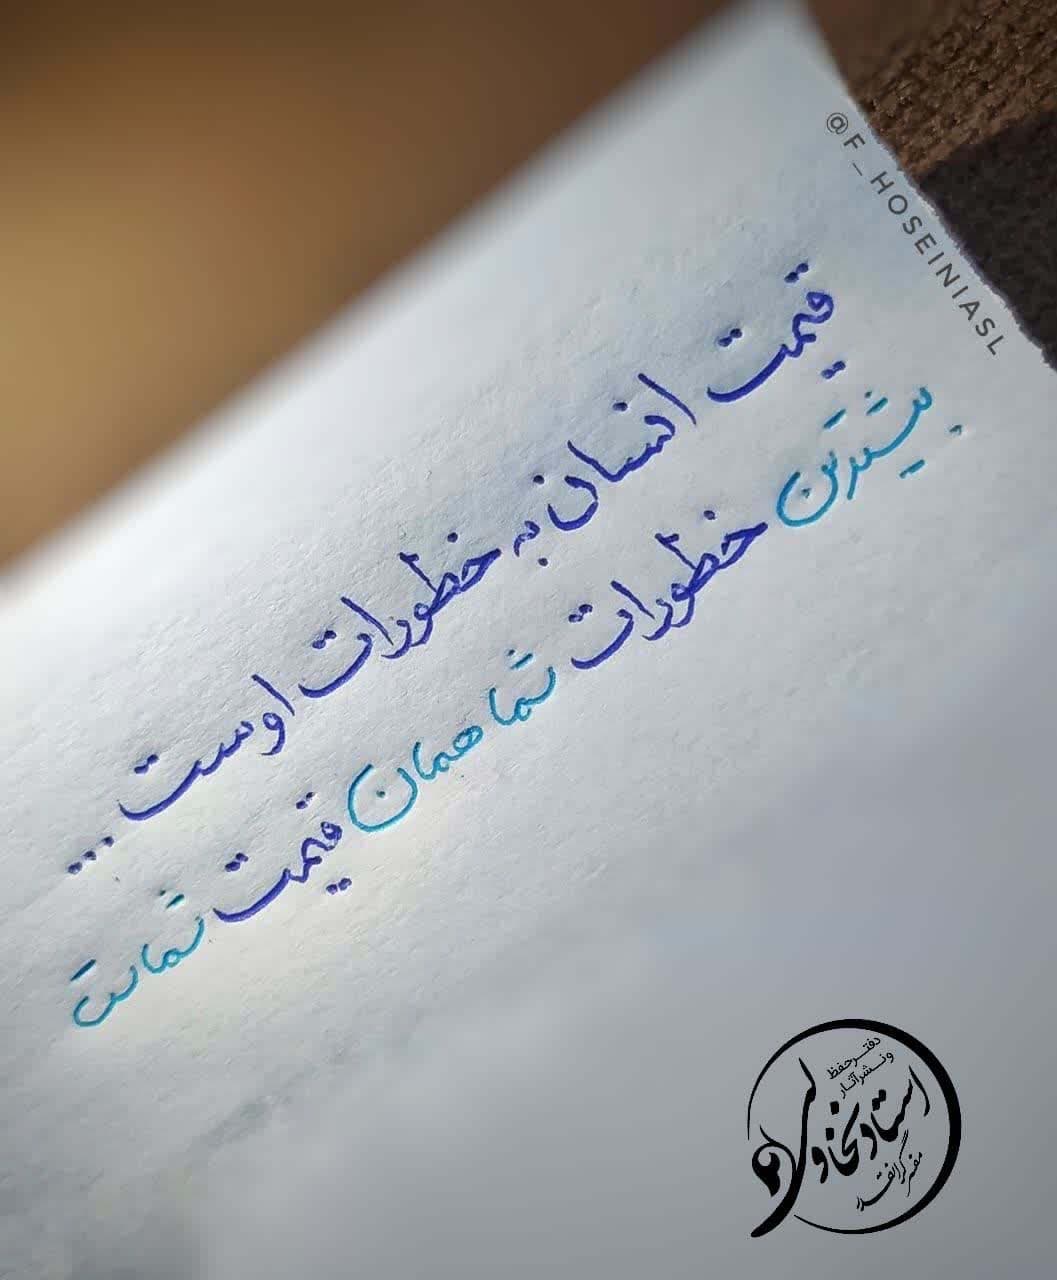 @F_HOSEINIASL
قیمت انسان به خطورات اوست ...
بیشترین خطورات شما همان قیمت شماست
دفتر حفظ
و نشر آثار
استاد نخاولی
مفسر گرانقدر